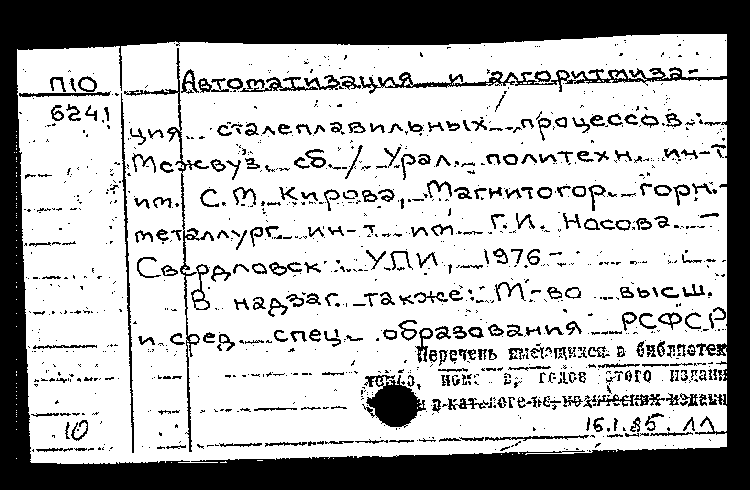 П10 Автоматизация и алгоритмиза-
6241
ция сталеплавильных процессов :
Межвуз. сб. / Урал. политехн. ин-т
им. С. М. Кирова, Магнитогор. горн.-
металлург. ин-т им. Г. И. Носова. –
Свердловск : УПИ, 1976 –
В надзаг. также: М-во высш.
и сред. спец. образования РСФСР
Перечень имеющихся в библиотек
томов, номе в, годов этого издани
в каталоге периодических издани
10 16.1.85.